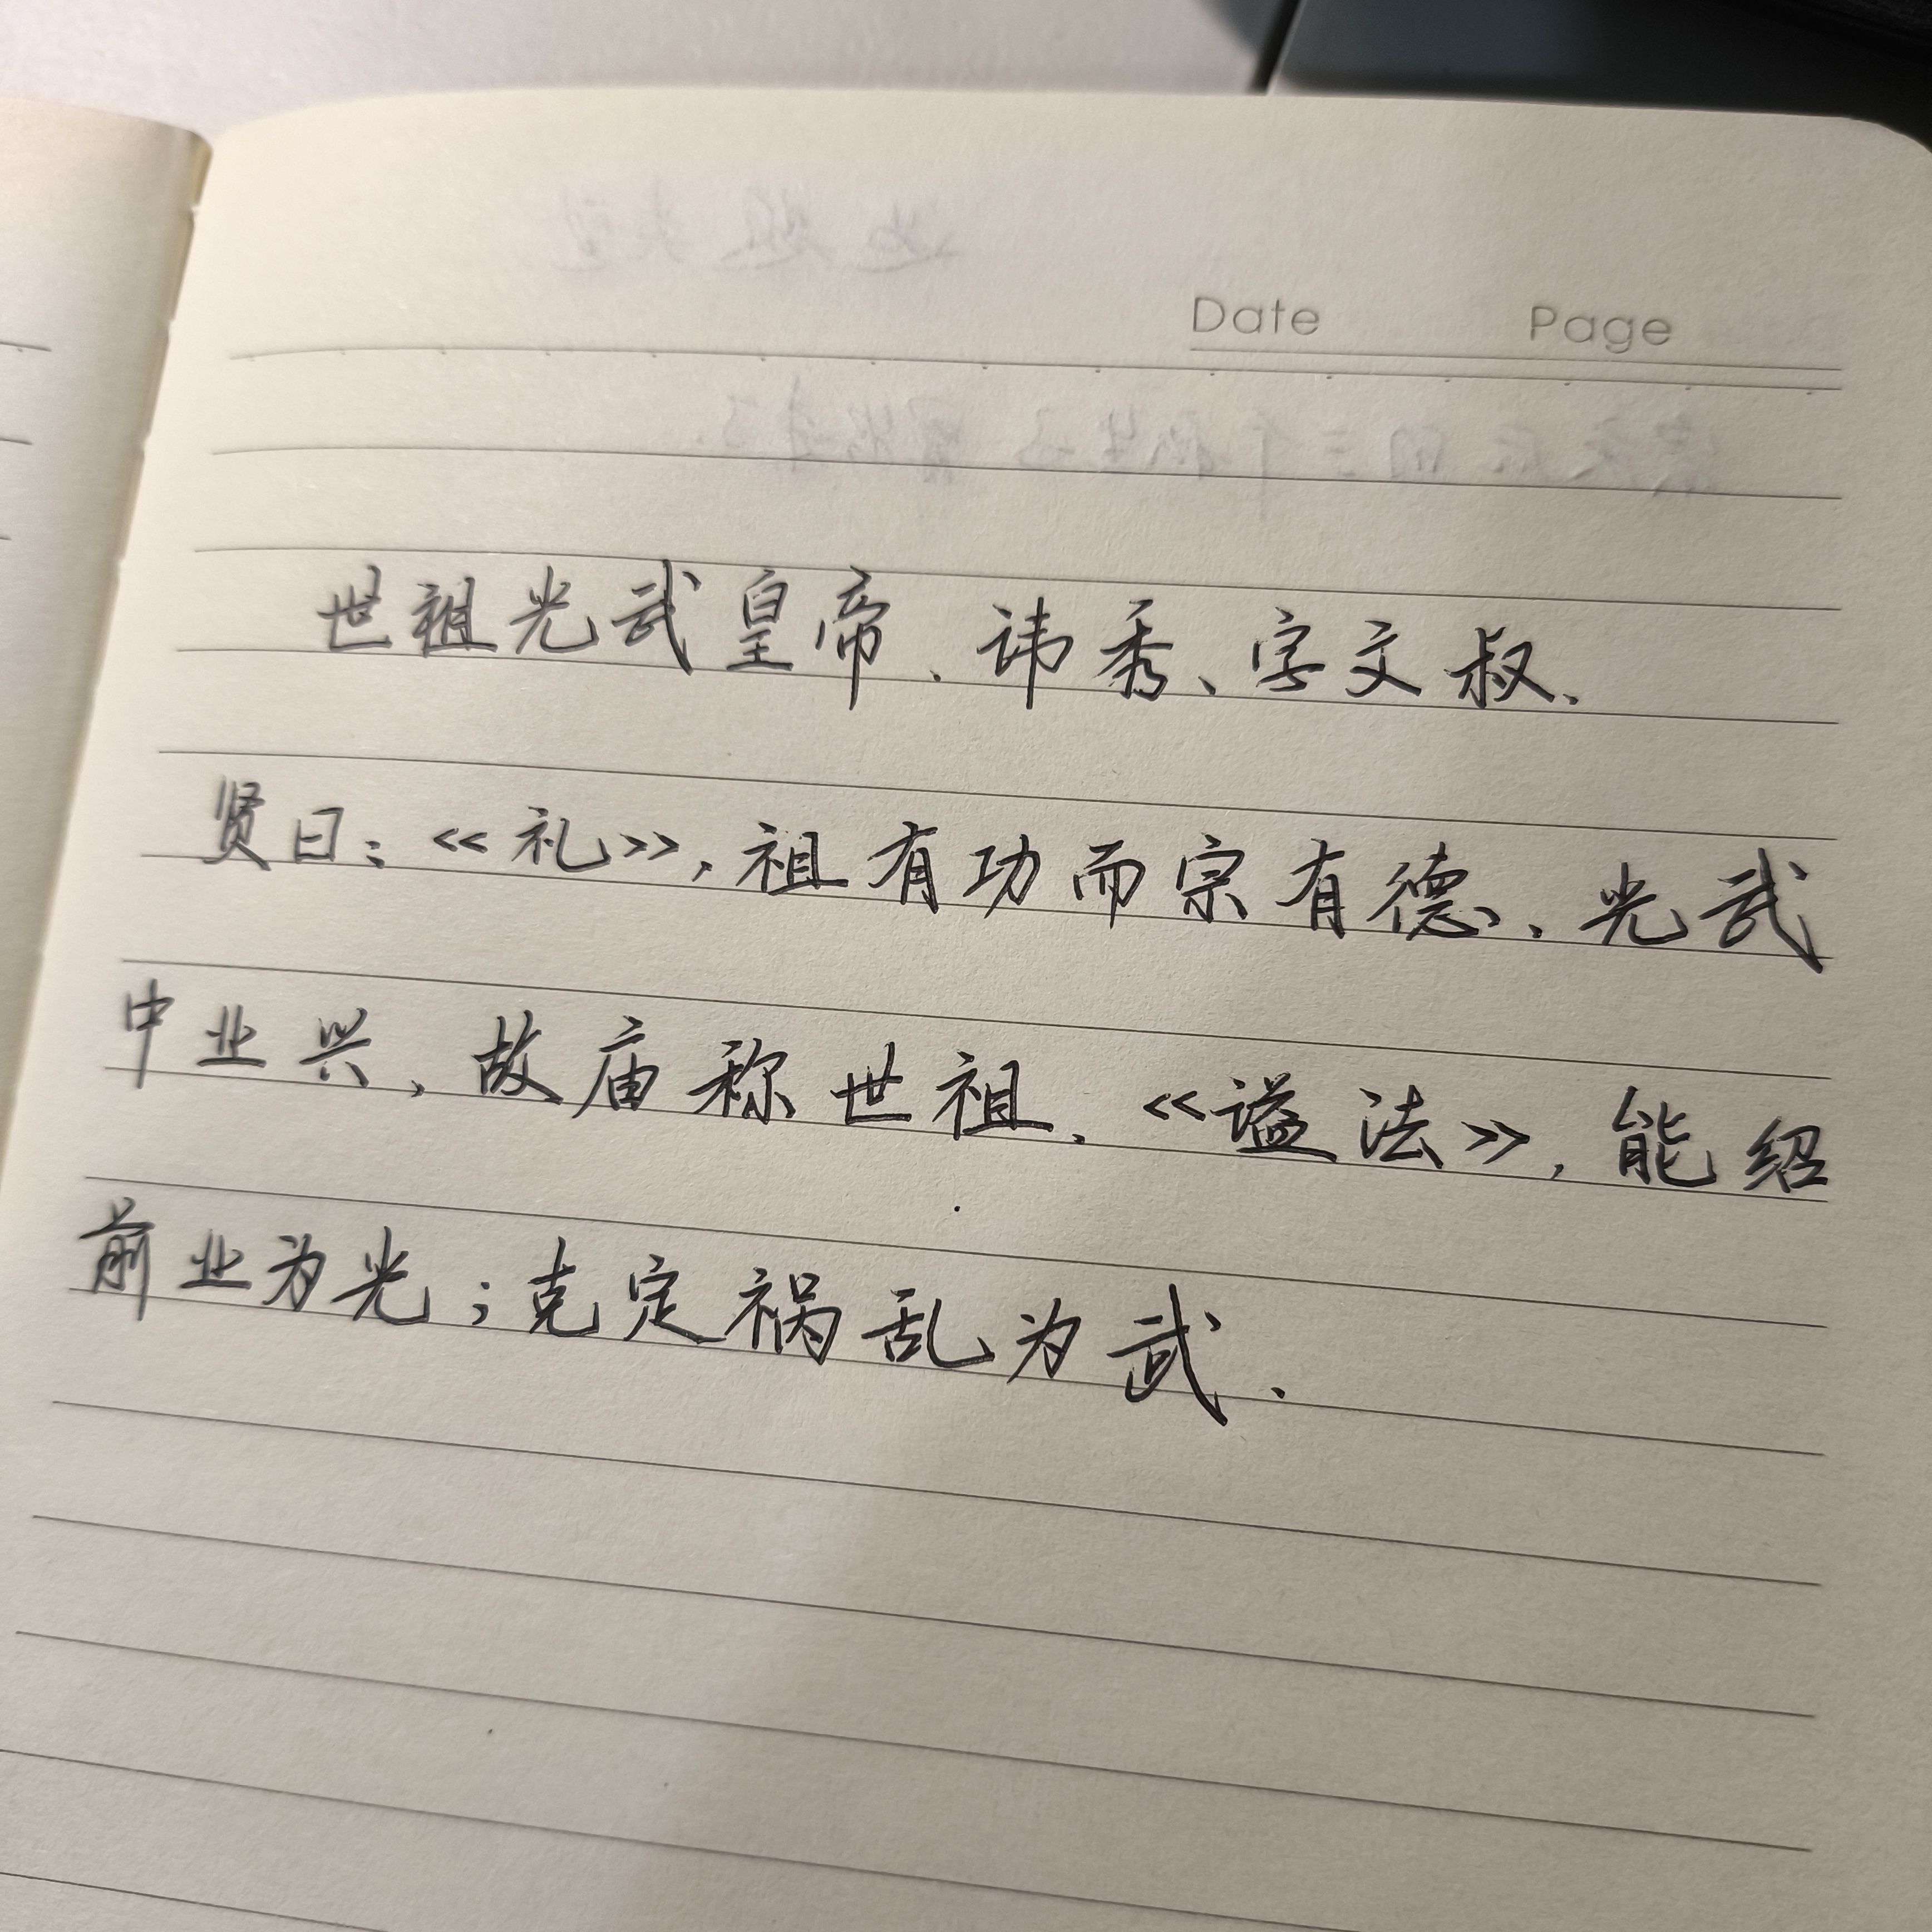 Date Page
世祖光武皇帝、讳秀、字文叔、
贤曰：《礼》，祖有功而宗有德、、光武
中业兴，故庙称世祖、《谥法》，能绍
前业为光；克定祸乱为武、